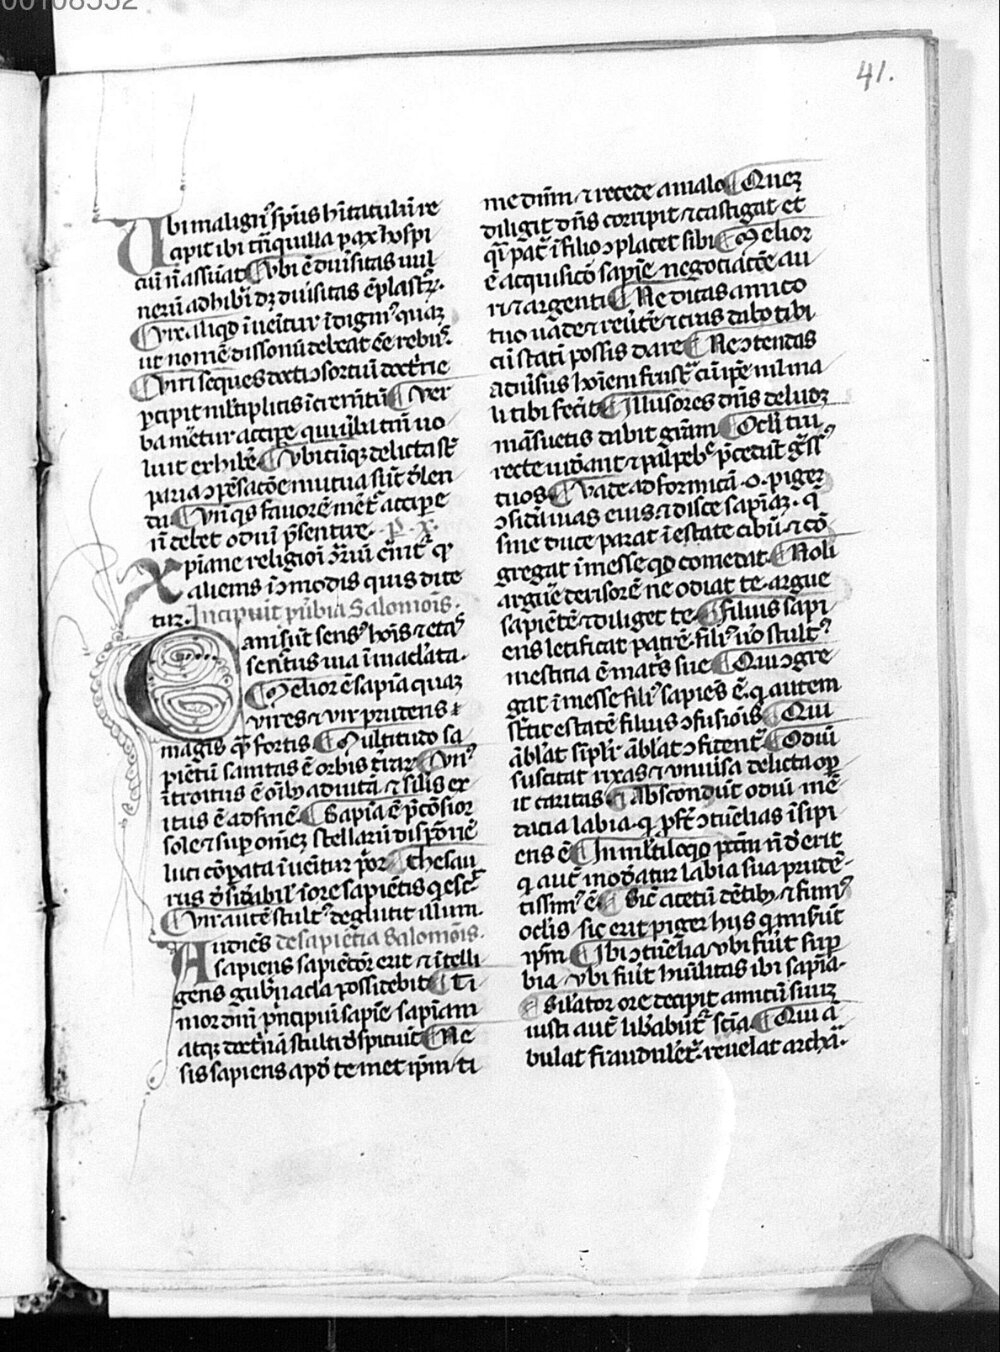 00108552
41.
Vbi malignꝰ spūs hītaculū re
capit ibi tn̄quilla pax hospi
ciū nō assūat ¶ Vbi ē diuīsitas uul
neru adhibn̄ dꝫ diuīsitas ēplastꝝ.
¶ Vix aliqd īueītur īdignꝰ quaꝫ
ut nomē dissonū debeat ēē rebꝰ.
¶ Viri seques docti ↄsortiū doctrīe
ꝑcipit mltiplicis īcremtū ¶ Ver
ba metur accipe qui ubi tm̄ uo
luit exhibē ¶ Vbicūqꝫ delicta sūt
paria ↄpēsatōe mutua sūt dolen
da ¶ Vnꝰ qs fauorē accipe
n̄ debet odiū p̄sentire. P. X.
Xpiane religiōi
aliens īↄmodis quis dite
tur. Incipiūt ꝓubia Salomōis.
Cani sūt sensꝰ hoīs ⁊ etas
senectus uita īmaclata.
¶ Melior ē sapīa quaꝫ
uires ⁊ vir prudens
magis qm̄ fortis ¶ Multitudo sa
pietiū sanitas ē orbis tr̄arꝝ ¶ Vnꝰ
ītroitus ē oībꝫ ad uitā ⁊ silis ex
itus ē ad finē ¶ Sapīa ē sp̄cōsior
sole ⁊ sup omēꝫ stellarū disp̄oē
luci cōpata īueītur p̄or ¶ Thesau
rus dsidābilꝰ ī ore sapiētis qescit
¶ Vir autē stultꝰ deglutit illum.
Audiēs de sapiētia Salomōis.
sapiens sapiētior erit ⁊ ītelli
gens gubnacla possidebit ¶ Ti
mor dn̄i p̄ncipiū sapīe sapīam
atqꝫ doctnā stulti dspiciūt ¶ Ne
sis sapiens apd temet ipm ti
me dn̄m ⁊ recede a malo ¶ Queꝫ
diligit dn̄s corripit ⁊ castigat et
qi pat ī filio ↄplacet sibi ¶ Melior
ē acquisico sapīe negociatōe au
ri ⁊ argenti ¶ Ne dicas amico
tuo uade ⁊ reūte ⁊ cras dabo tibi
cū stati possis dare ¶ Ne ↄtendas
aduīsus hoīem frust cū ipe nil ma
li tibi fecīt ¶ Illusores dn̄s deludꝫ
māsuetis dabit gr̄am ¶ Ocli tui
recte uidāt ⁊ palpebe p̄cedāt gssꝰ
tuos ¶ Vade ad formicā o piger
ↄsidā uias eius ⁊ disce sapīaꝫ. q
sine duce parat ī estate cibū ⁊ cō
gregat ī messe qd comedat ¶ Noli
arguē derisorē ne odiat te. argue
sapiētē ⁊ diliget te ¶ Filius sapi
ens letificat patrē. filiꝰ uo stultꝰ
mestitia ē matis sue ¶ Qui ↄgre
gat ī messe filiꝰ sapiēs ē. q autem
st̄tit estatē filius ↄfusiōis ¶ Qui
āblat sīplr āblat ↄfident ¶ Odiū
suscitat rixas ⁊ vniūsa delicta op
it caritas ¶ Abscondūt odiū mē
dacia labia. q ꝓft ↄtūelias īsipi
ens ē ¶ In mltiloqio pctm n̄ derit
q aut modatur labia sua prudē
tissimꝰ ē ¶ Sic acetū dētibꝫ ⁊ fumꝰ
oclis sic erit piger hijs q miserūt
ipm ¶ Ibi ↄtūelia vbi fūit sup
bia vbi fūit hūilitas ibi sapīa.
¶ Silator ore decipit amicū suuꝫ
iusti aut libabūt scīa ¶ Qui ā
bulat fraudulet. reuelat archā.